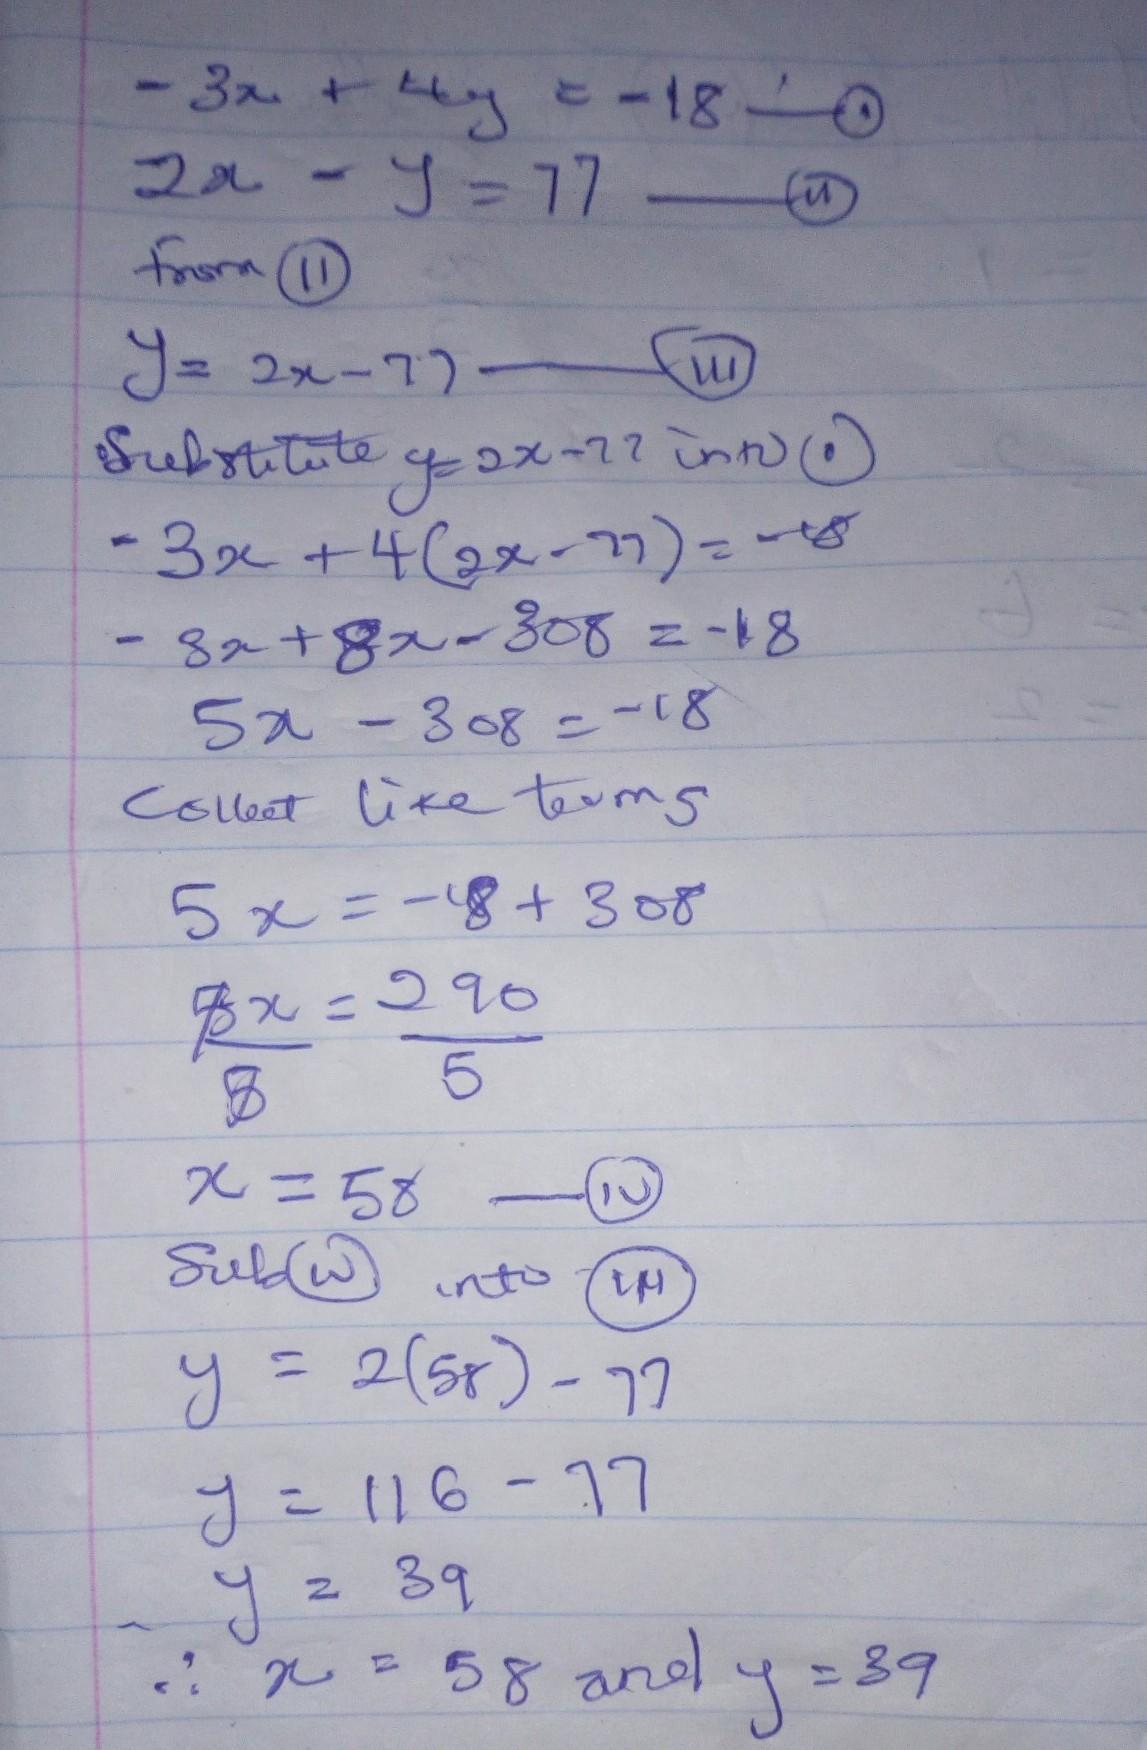 -3x + 4y = -18 — (i)
2x - y = 77 — (ii)
from (ii)
y = 2x - 77 — (iii)
Substitute y = 2x - 77 into (i)
-3x + 4(2x - 77) = -18
-3x + 8x - 308 = -18
5x - 308 = -18
Collect like terms
5x = -18 + 308
5x = 290
5 5
x = 58 — (iv)
Sub (iv) into (iii)
y = 2(58) - 77
y = 116 - 77
y = 39
∴ x = 58 and y = 39